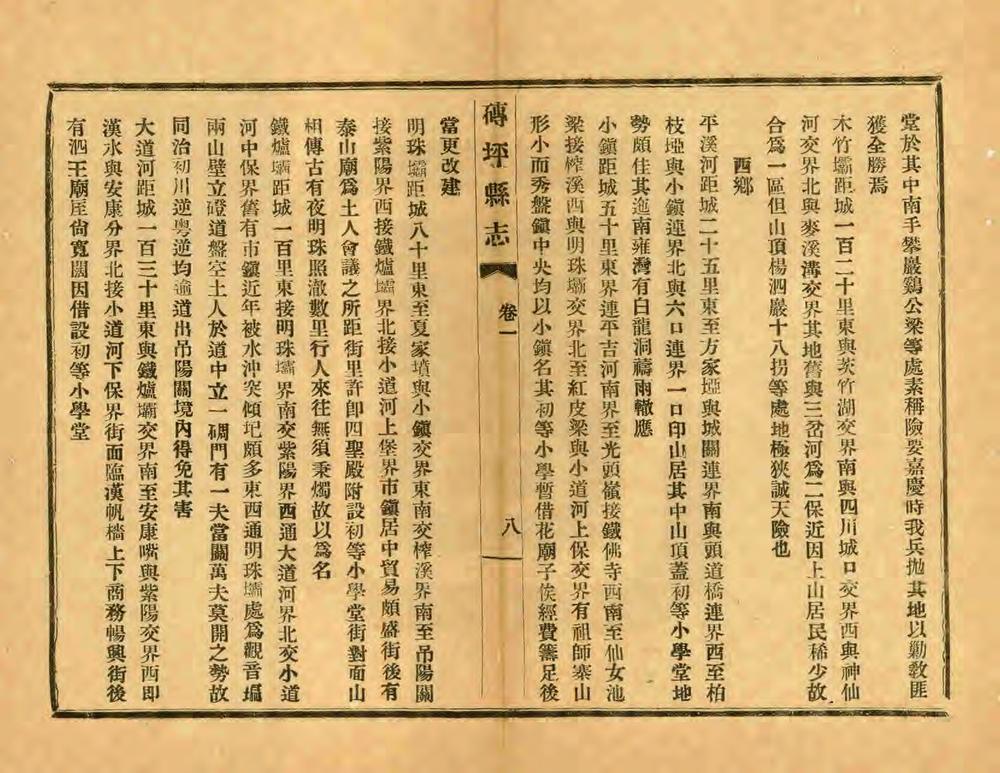 堂於其中南手攀巖鷄公梁等處素稱險要嘉慶時我兵抛其地以勦敎匪
獲全勝焉
木竹壩距城一百二十里東與茨竹湖交界南與四川城口交界西與神仙
河交界北與麥溪溝交界其地舊與三岔河爲二保近因上山居民稀少故
合爲一區但山頂楊泗巖十八拐等處地極狹誠天險也
西鄉
平溪河距城二十五里東至方家埡與城關連界南與頭道橋連界西至柏
枝埡與小鎭連界北與六口連界一口印山居其中山頂蓋初等小學堂地
勢頗佳其迤南雍灣有白龍洞禱雨轍應
小鎭距城五十里東界連平吉河南界至光頭嶺接鐵佛寺西南至仙女池
梁接榨溪西與明珠壩交界北至紅皮梁與小道河上保交界有祖師寨山
形小而秀盤鎭中央均以小鎭名其初等小學暫借花廟子俟經費籌足後
磚坪縣志
卷一
八
當更改建
明珠壩距城八十里東至夏家墳與小鎭交界東南交榨溪界南至吊陽關
接紫陽界西接鐵爐壩界北接小道河上堡界市鎭居中貿易頗盛街後有
泰山廟爲土人會議之所距街里許卽四聖殿附設初等小學堂街對面山
相傳古有夜明珠照澈數里行人來往無須秉燭故以爲名
鐵爐壩距城一百里東接明珠壩界南交紫陽界西通大道河界北交小道
河中保界舊有市鎭近年被水沖突傾圮頗多東西通明珠壩處爲觀音堰
兩山壁立磴道盤空土人於道中立一碉門有一夫當關萬夫莫開之勢故
同治初川逆粵逆均逾道出吊陽關境內得免其害
大道河距城一百三十里東與鐵爐壩交界南至安康嘴與紫陽交界西卽
漢水與安康分界北接小道河下保界街面臨漢帆檣上下商務暢興街後
有泗王廟屋尙寬闊因借設初等小學堂